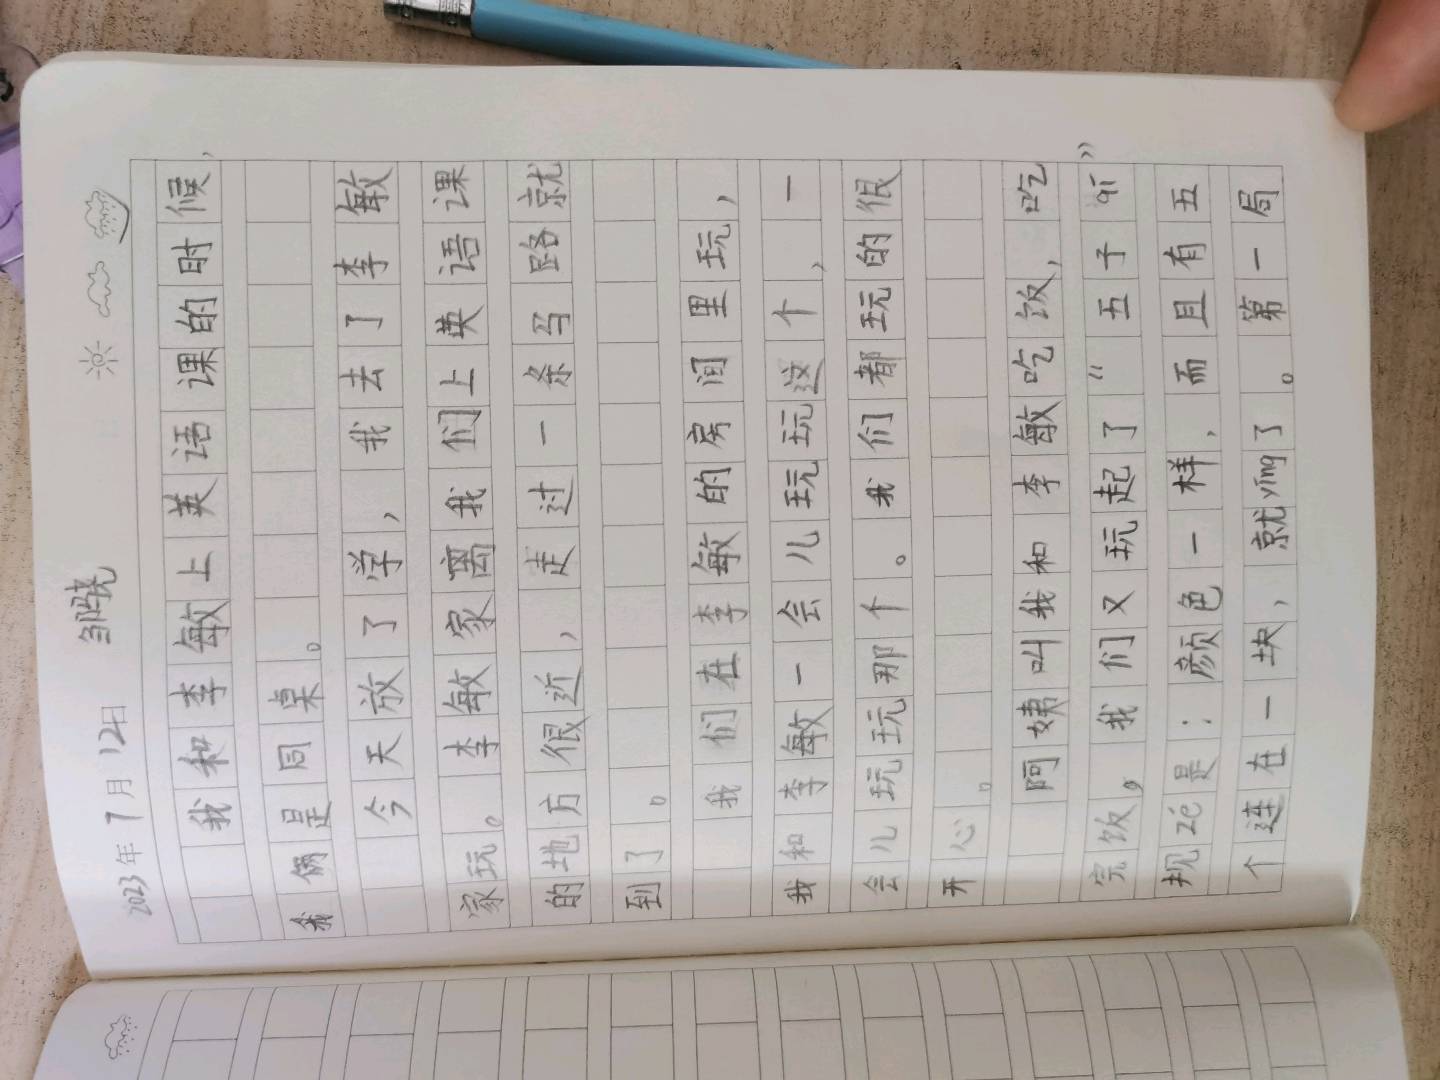 2023年7月12日 邹晓
我和李敏上英语课的时候,
我俩是同桌。
今天放了学,我去了李敏
家玩。李敏家离我们上英语课
的地方很近,走过一条马路就
到了。
我们在李敏的房间里玩,
我和李敏一会儿玩玩这个,一
会儿玩玩那个。我们都玩的很
开心。
阿姨叫我和李敏吃饭,吃
完饭。我们又玩起了“五子qí”
规zé是:颜色一样,而且有五
个连在一块,就yíng了。第一局